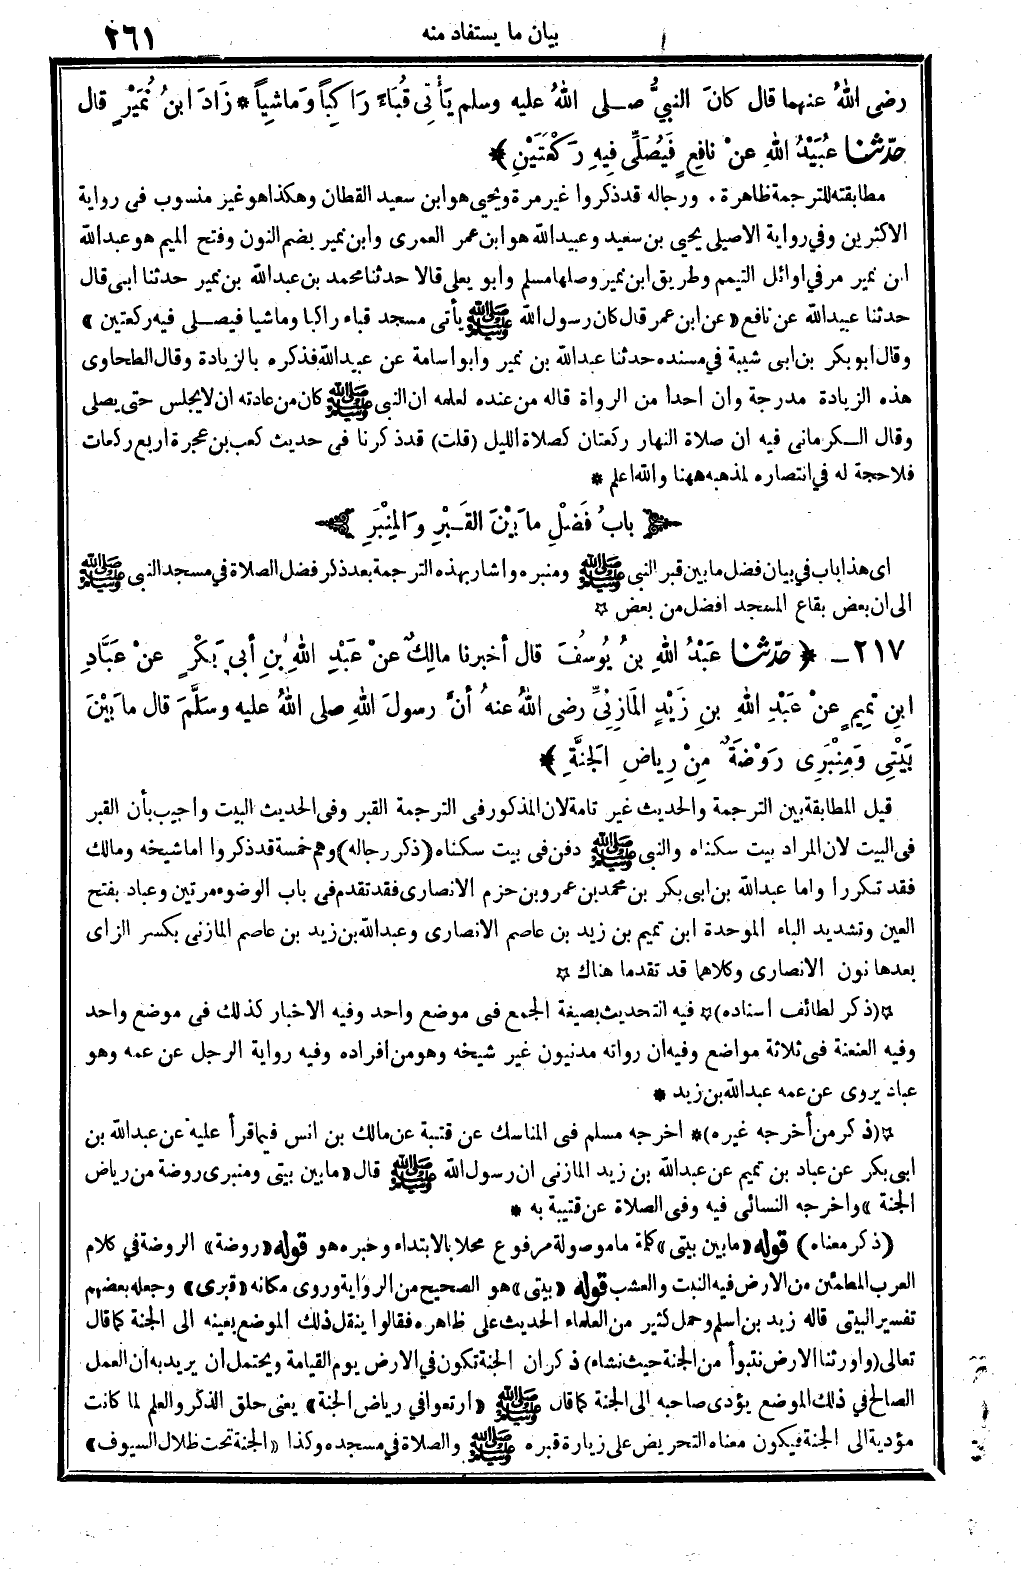 بيان ما يستفاد منه
٢٦١
رضى اللهُ عنهما قال كانَ النبيُّ صلى اللهُ عليه وسلم يَأْتِى قُبَاءً رَاكِباً وَمَاشِياً * زَادَ ابنُ نُمَيْرٍ قال
حدّثنا عُبَيْدُ اللهِ عنْ نافِعٍ فَيُصَلِّى فِيهِ رَكْعَتَيْنِ ﴾
مطابقته للترجمة ظاهرة . ورجاله قد ذكروا غير مرة ويحيى هو ابن سعيد القطان وهكذا هو غير منسوب فى رواية
الاكثرين وفى رواية الاصيلى يحيى بن سعيد وعبيدالله هو ابن عمر العمرى وابن نمير بضم النون وفتح الميم هو عبدالله
ابن نمير مر فى اوائل التيمم وطريق ابن نمير وصلها مسلم وابو يعلى قالا حدثنا محمد بن عبدالله بن نمير حدثنا ابى قال
حدثنا عبيدالله عن نافع «عن ابن عمر قال كان رسول الله ﷺ يأتى مسجد قباء راكبا وماشيا فيصلى فيه ركعتين»
وقال ابو بكر بن ابى شيبة فى مسنده حدثنا عبدالله بن نمير وابو اسامة عن عبيدالله فذكره بالزيادة وقال الطحاوى
هذه الزيادة مدرجة وان احدا من الرواة قاله من عنده لعلمه ان النبى ﷺ كان من عادته ان لا يجلس حتى يصلى
وقال الكرمانى فيه ان صلاة النهار ركعتان كصلاة الليل (قلت) قد ذكرنا فى حديث كعب بن عجرة اربع ركعات
فلا حجة له فى انتصاره لمذهبه ههنا والله اعلم *
﴿ بابُ فَضْلِ ما بَيْنَ القَبْرِ وَالمِنْبَرِ ﴾
اى هذا باب فى بيان فضل ما بين قبر النبى ﷺ ومنبره واشار بهذه الترجمة بعد ذكر فضل الصلاة فى مسجد النبى ﷺ
الى ان بعض بقاع المسجد افضل من بعض ☆
٢١٧ - ﴿ حدّثنا عَبْدُ اللهِ بنُ يُوسُفَ قال أخبرنا مالِكٌ عنْ عَبْدِ اللهِ بنِ أبي بَكْرٍ عنْ عَبَّادِ
ابنِ تَمِيمٍ عنْ عَبْدِ اللهِ بنِ زَيْدٍ المَازِنِيِّ رضى اللهُ عنهُ أنَّ رسولَ اللهِ صلى اللهُ عليه وسَلَّمَ قال ما بَيْنَ
بَيْتِى وَمِنْبَرِى رَوْضَةٌ مِنْ رِياضِ الجَنَّةِ ﴾
قيل المطابقة بين الترجمة والحديث غير تامة لان المذكور فى الترجمة القبر وفى الحديث البيت واجيب بأن القبر
فى البيت لان المراد بيت سكناه والنبى ﷺ دفن فى بيت سكناه (ذكر رجاله) وهم خمسة قد ذكروا اما شيخه ومالك
فقد تكررا واما عبدالله بن ابى بكر بن محمد بن عمرو بن حزم الانصارى فقد تقدم فى باب الوضوء مرتين وعباد بفتح
العين وتشديد الباء الموحدة ابن تميم بن زيد بن عاصم الانصارى وعبدالله بن زيد بن عاصم المازنى بكسر الزاى
بعدها نون الانصارى وكلاهما قد تقدما هناك ☆
☆(ذكر لطائف اسناده)☆ فيه التحديث بصيغة الجمع فى موضع واحد وفيه الاخبار كذلك فى موضع واحد
وفيه العنعنة فى ثلاثة مواضع وفيه ان رواته مدنيون غير شيخه وهو من افراده وفيه رواية الرجل عن عمه وهو
عباد يروى عن عمه عبدالله بن زيد *
☆(ذكر من أخرجه غيره)* اخرجه مسلم فى المناسك عن قتيبة عن مالك بن انس فيما قرأ عليه عن عبدالله بن
ابى بكر عن عباد بن تميم عن عبدالله بن زيد المازنى ان رسول الله ﷺ قال «ما بين بيتى ومنبرى روضة من رياض
الجنة» واخرجه النسائى فيه وفى الصلاة عن قتيبة به *
(ذكر معناه) قوله «ما بين بيتى» كلمة ما موصولة مرفوع محلا بالابتداء وخبره هو قوله «روضة» الروضة فى كلام
العرب المطمئن من الارض فيه النبت والعشب قوله «بيتى» هو الصحيح من الرواية وروى مكانه «قبرى» وجعله بعضهم
تفسير البيتى قاله زيد بن اسلم وحمل كثير من العلماء الحديث على ظاهره فقالوا ينقل ذلك الموضع بعينه الى الجنة كما قال
تعالى (واورثنا الارض نتبوأ من الجنة حيث نشاء) ذكر ان الجنة تكون فى الارض يوم القيامة ويحتمل ان يريد به ان العمل
الصالح فى ذلك الموضع يؤدى صاحبه الى الجنة كما قال ﷺ «ارتعوا فى رياض الجنة» يعنى حلق الذكر والعلم لما كانت
مؤدية الى الجنة فيكون معناه التحريض على زيارة قبره ﷺ والصلاة فى مسجده وكذا «الجنة تحت ظلال السيوف»